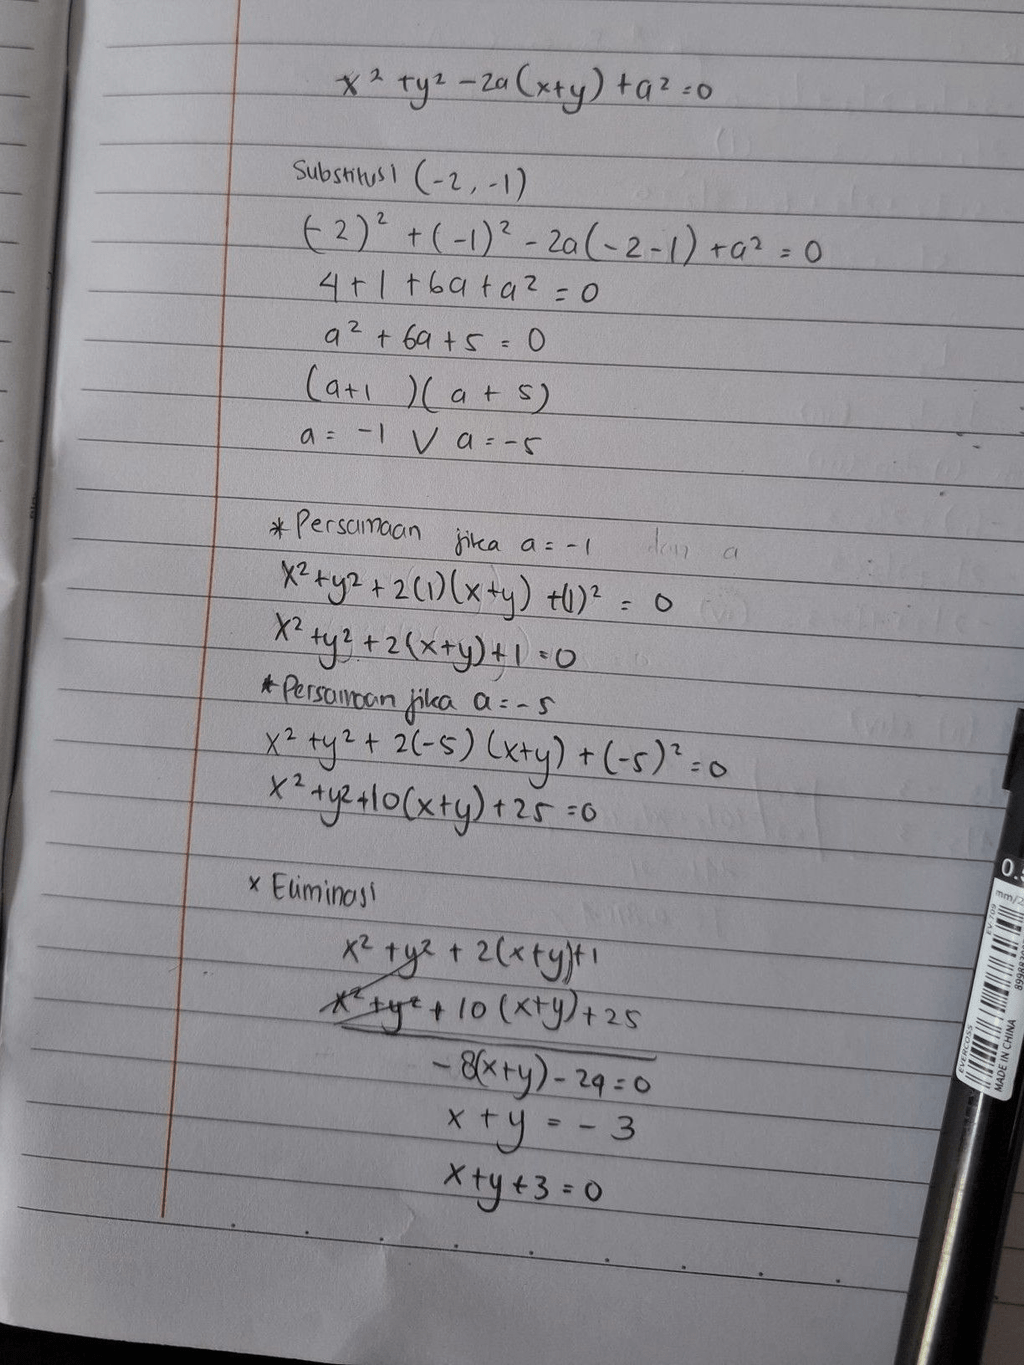 x² + y² - 2a(x+y) + a² = 0
Substitusi (-2, -1)
(-2)² + (-1)² - 2a(-2-1) + a² = 0
4 + 1 + 6a + a² = 0
a² + 6a + 5 = 0
(a+1 )(a + 5)
a = -1 V a = -5
* Persamaan jika a = -1 dan a
x² + y² + 2(1)(x+y) + (1)² = 0
x² + y² + 2(x+y) + 1 = 0
* Persamaan jika a = -5
x² + y² + 2(-5)(x+y) + (-5)² = 0
x² + y² + 10(x+y) + 25 = 0
x Eliminasi
x² + y² + 2(x+y) + 1
x² + y² + 10(x+y) + 25
-8(x+y) - 24 = 0
x + y = -3
x + y + 3 = 0
0.5
mm/2
EV-709
EVERCOSS
MADE IN CHINA